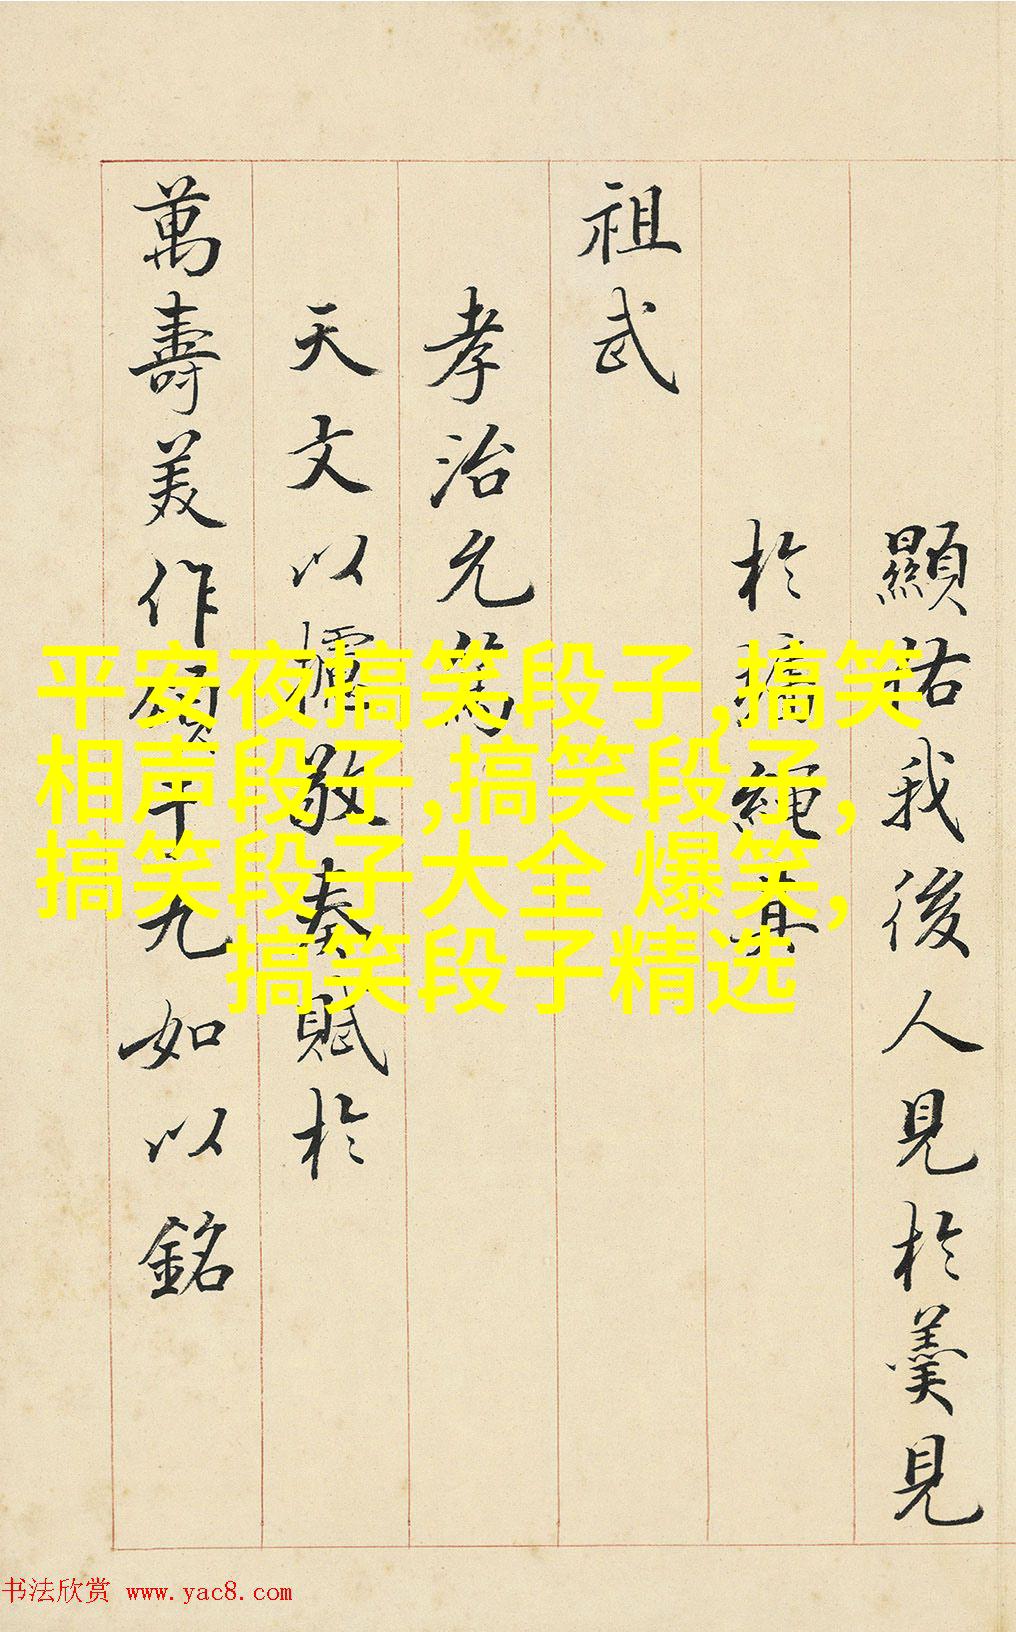 顯祐我後人見於羹見
於墻繩其
祖武
孝治允篤
天文以攄敬奏賦於
萬壽美作頌千九如以銘
平安夜搞笑段子,搞笑
相声段子,搞笑段子,
搞笑段子大全 爆笑,
搞笑段子精选
书法欣赏 www.yac8.com